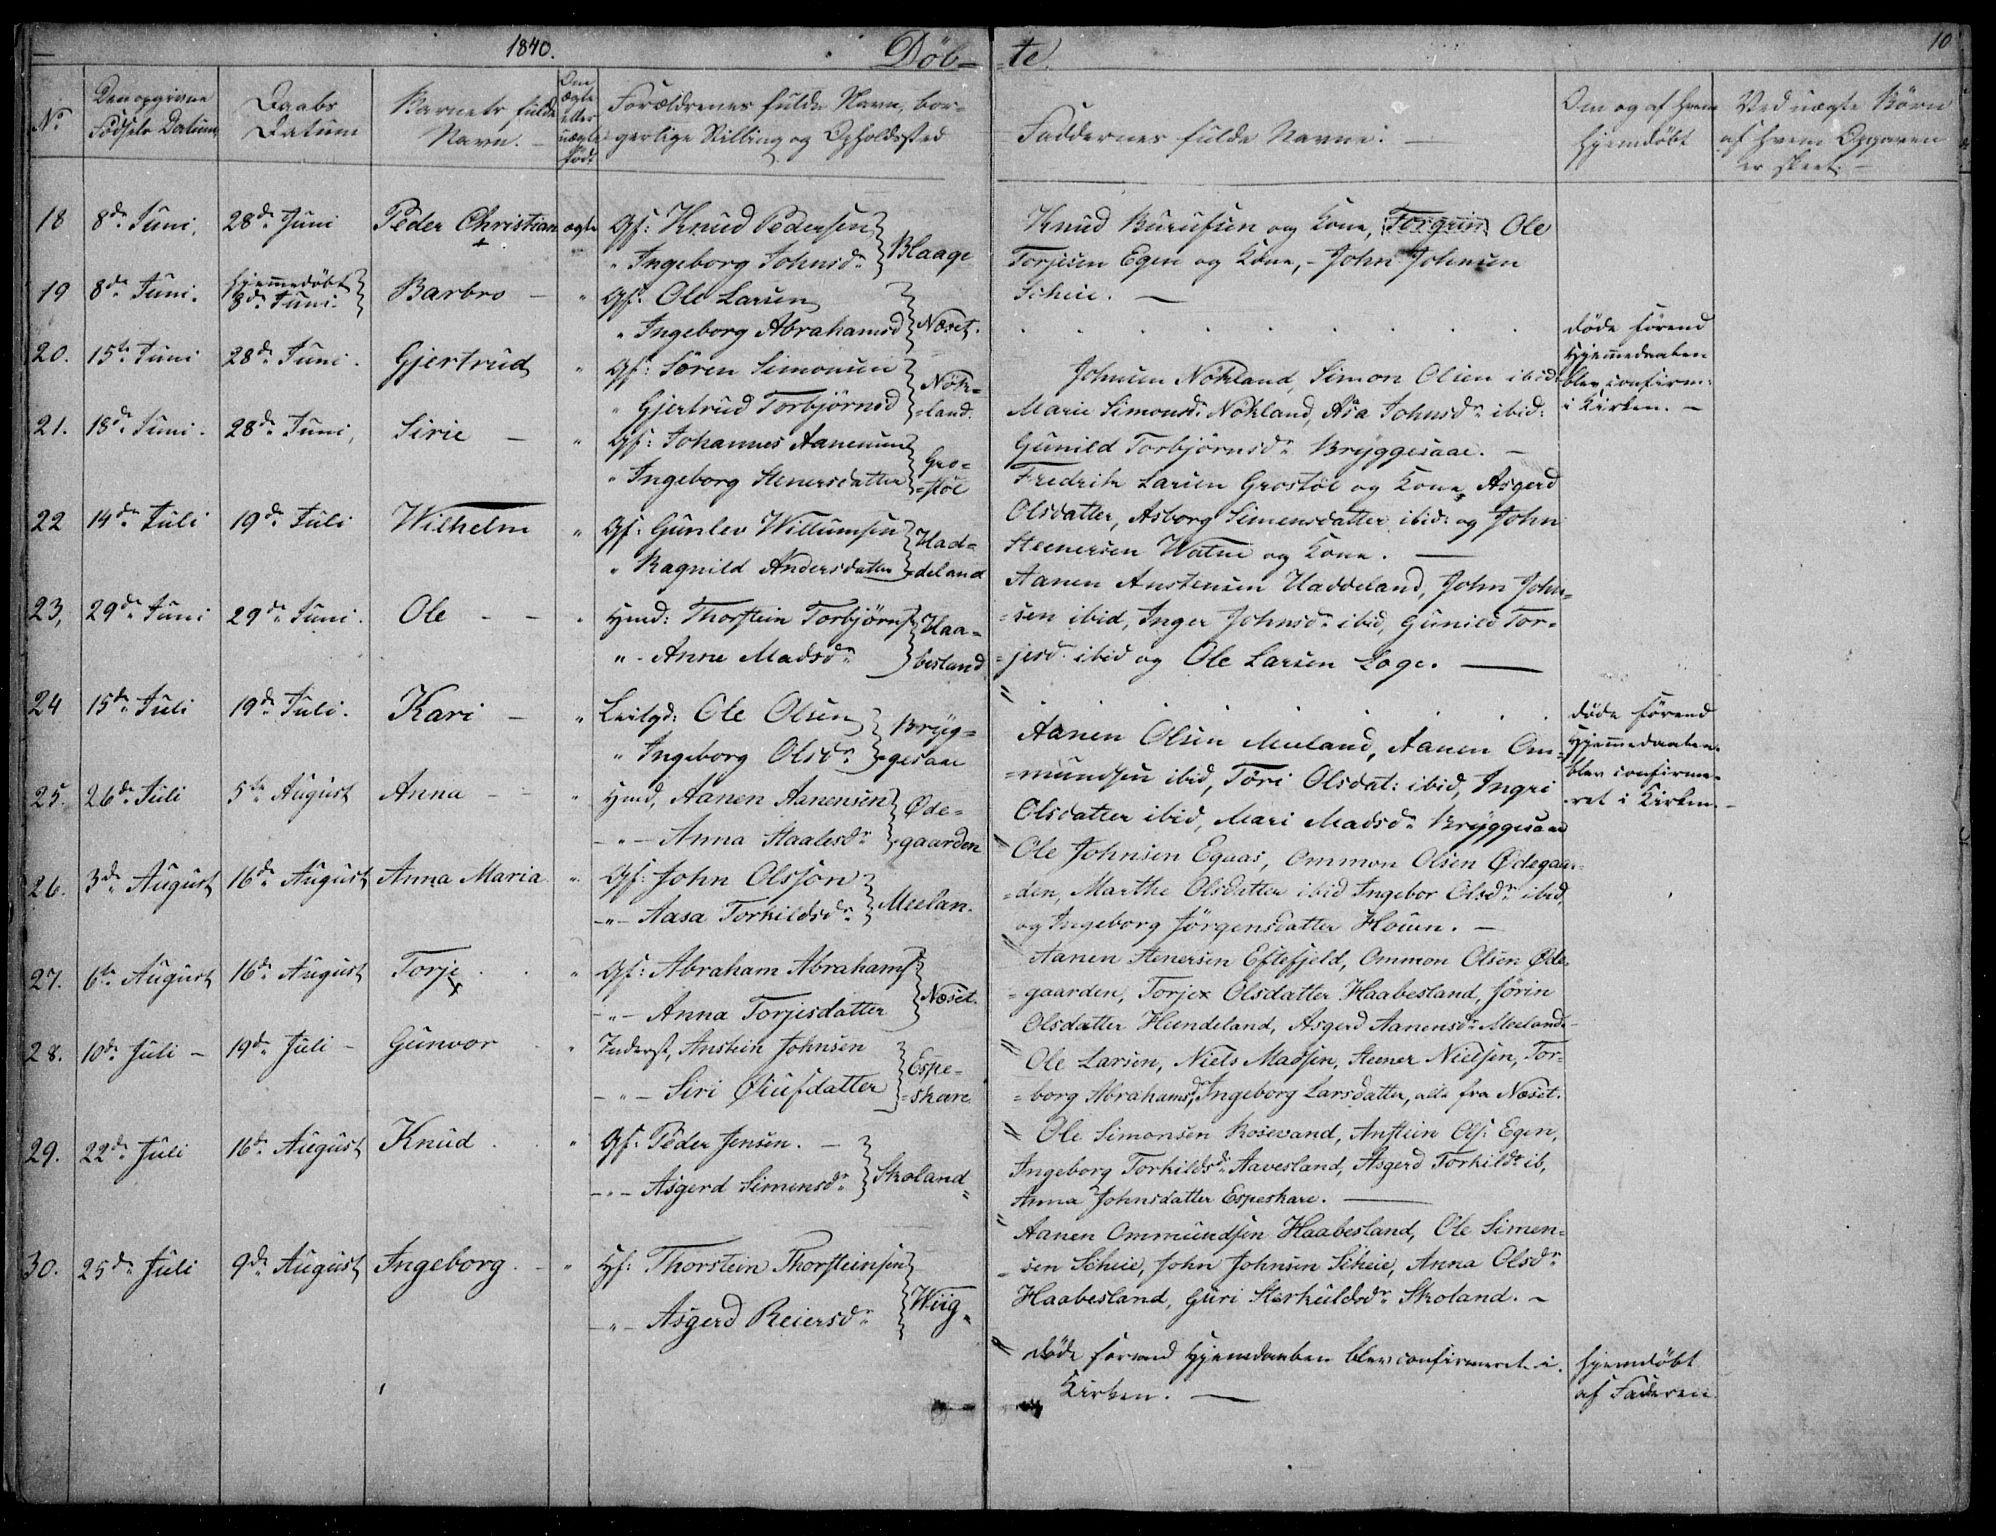 1840.
Döb- -te.
10
No
Den opgivne
Fødsels Datum
Daabs
Datum
Barnets fulde
Navn.
Om
ægte
eller
uægte
født
Forældrenes fulde Navn, bor-
gerlige Stilling og Opholdssted
Faddernes fulde Navne:
Om og af hvem
hjemdøbt
Ved uægte Børn
af hvem Opgaven
er skeet.
18 8de Juni, 28de Juni Peder Christian ægte Gf: Knud Pedersen
" Ingeborg Johnsdr Blaage
Knud og Kone, Ole
Torjesen Egen og Kone, - John Johnsen
Scheie.
19 8de Juni. Hjemmedöbt
8de Juni. Barbro - " Gf. Ole Larsen
" Ingeborg Abrahamsd Næset.
døde förend
Hjemmedaaben
blev confirm:
i Kirken. -
20. 15de Juni 28de Juni. Gjertrud " Gf: Sören Simonsen
" Gjertrud Torbjörnsd Nök-
=land.
Johnsen Nökland, Simon Olsen ibid:
Marie Simonsdr Nökland, Asa Johnsdr ibid:
Gunild Torbjörnsdr Bryggesaae. -
21. 18de Juni. 28de Juni, Sirie - " Gf: Johannes Aanensen
" Ingeborg Stenersdatter Gro-
=stöl
Fredrik Larsen Grostöl og Kone, Asgerd
Olsdatter, Asborg Simensdatter ibid: og John
Steenersen Watne og Kone. -
22 14de Juli 19de Juli Wilhelm " Gf: Gunlev Willumsen
" Ragnild Andersdatter Had-
=deland
Aanen Anstensen Haddeland, John John-
=sen ibid, Inger Johnsdr ibid, Gunild Tor-
=jesd. ibid og Ole Larsen Loge. -
23, 29de Juni 29de Juni. Ole - - " Hmd: Thorstein Torbjörns
" - Anne Madsdr Haa-
besland
døde förend
Hjemmedaaben
blev confirme-
-ret i Kirken. -
24 15de Juli 19de Juli. Kari - " Leilgd: Ole Olsen
" Ingeborg Olsdr Bryg-
=gesaae
Aanen Olsen Meeland, Aanen Om-
=mundsen ibid, Tori Olsdat: ibid, Ingri
Olsdatter ibid, Mari Madsdr Bryggesaae
25. 26de Juli 5te August Anna - - " Hmd, Aanen Aanensen
- " - Anna Staalesdr Øde-
=gaarden
Ole Johnsen Egaas, Ommon Olsen Ødegaar-
=den, Marthe Olsdatter ibid Ingebor Olsdr ibid
og Ingeborg Jörgensdatter Houen. -
26. 3de August 16de August Anna Maria " Gf: John Olsson
- " - Aasa Torkildsdr Meelan.
Aanen Stenersen Eftefjeld, Ommon Olsen Øde-
=gaarden, Torjer Olsdatter Haabesland, Jörin
Olsdatter Hundeland, Asgerd Aanensdr Meeland-
27. 6te August 16de August Torje . . " Gf: Abraham Abrahams
- " - Anna Torjesdatter Næset.
Ole Larsen, Niels Madsen, Steener Nielsen, Tor-
=borg Abrahamsdr, Ingeborg Larsdatter, alle fra Næset.
28. 10de Juli - 19de Juli - Gunvor . " Inderst, Anstein Johnsen
- " - Siri datter Espe-
=skare
Ole Simonsen Rosevand, Anstein Ols: Egen,
Ingeborg Torkildsdr Aavesland, Asgerd Torkildr ib,
Anna Johnsdatter Espeskare. -
29. 22de Juli 16de August Knud . . " Gf: Peder Jensen. -
- " - Asgerd Simensdr Skoland
Aanen Ommundsen Haabesland, Ole Simen-
=sen Scheie, John Johnsen Scheie, Anna Olsdr
Haabesland, Guri Sterkuldsdr Skoland. -
30. 25de Juli 9de August Ingeborg . - " Hf: Thorstein Thorsteinsen
- " - Asgerd Reiersdr Wiig
döde forend Hjemedaaben blev confirmeret i
Kirken. -
hjemdöbt
af Faderen